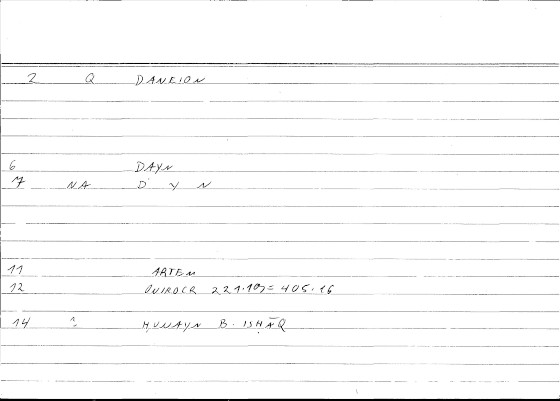 2 Q DANEION
6 DAYN
7 NA D Y N
11 ARTEM
12 221.19 = 405.16
14 ? ḤUNAYN B. ISḤĀQ